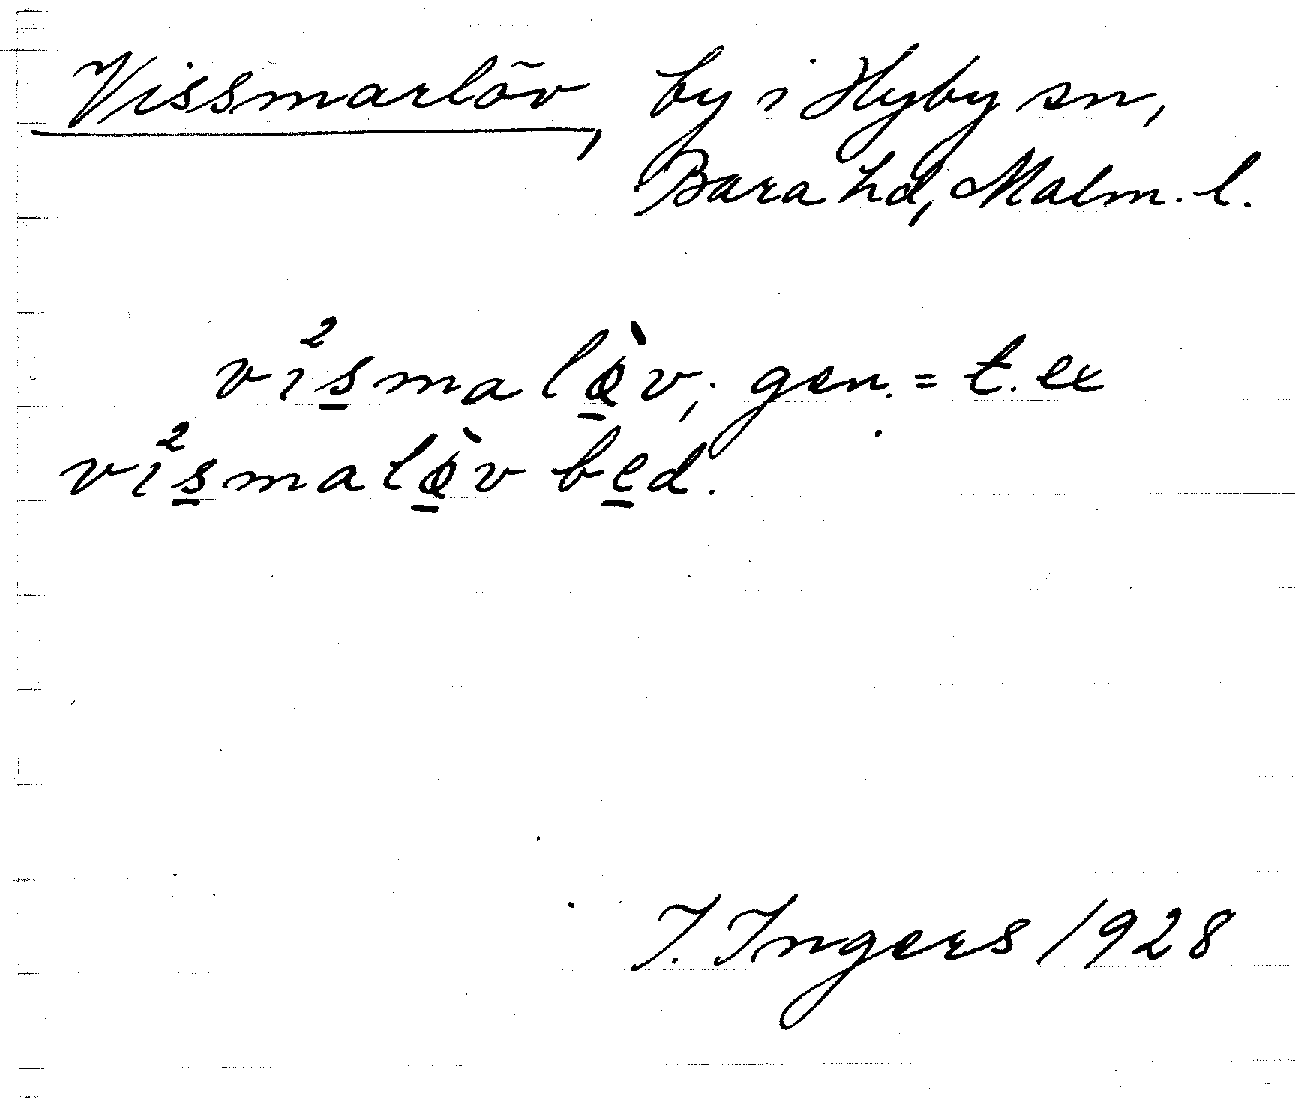 Vissmarlöv, by i Hyby sn,
Bara hd, Malm. l.
vi²s̲malø̲̀v; gen. = t. ex
vi²s̲malø̲̀v be̲d.
I. Ingers 1928